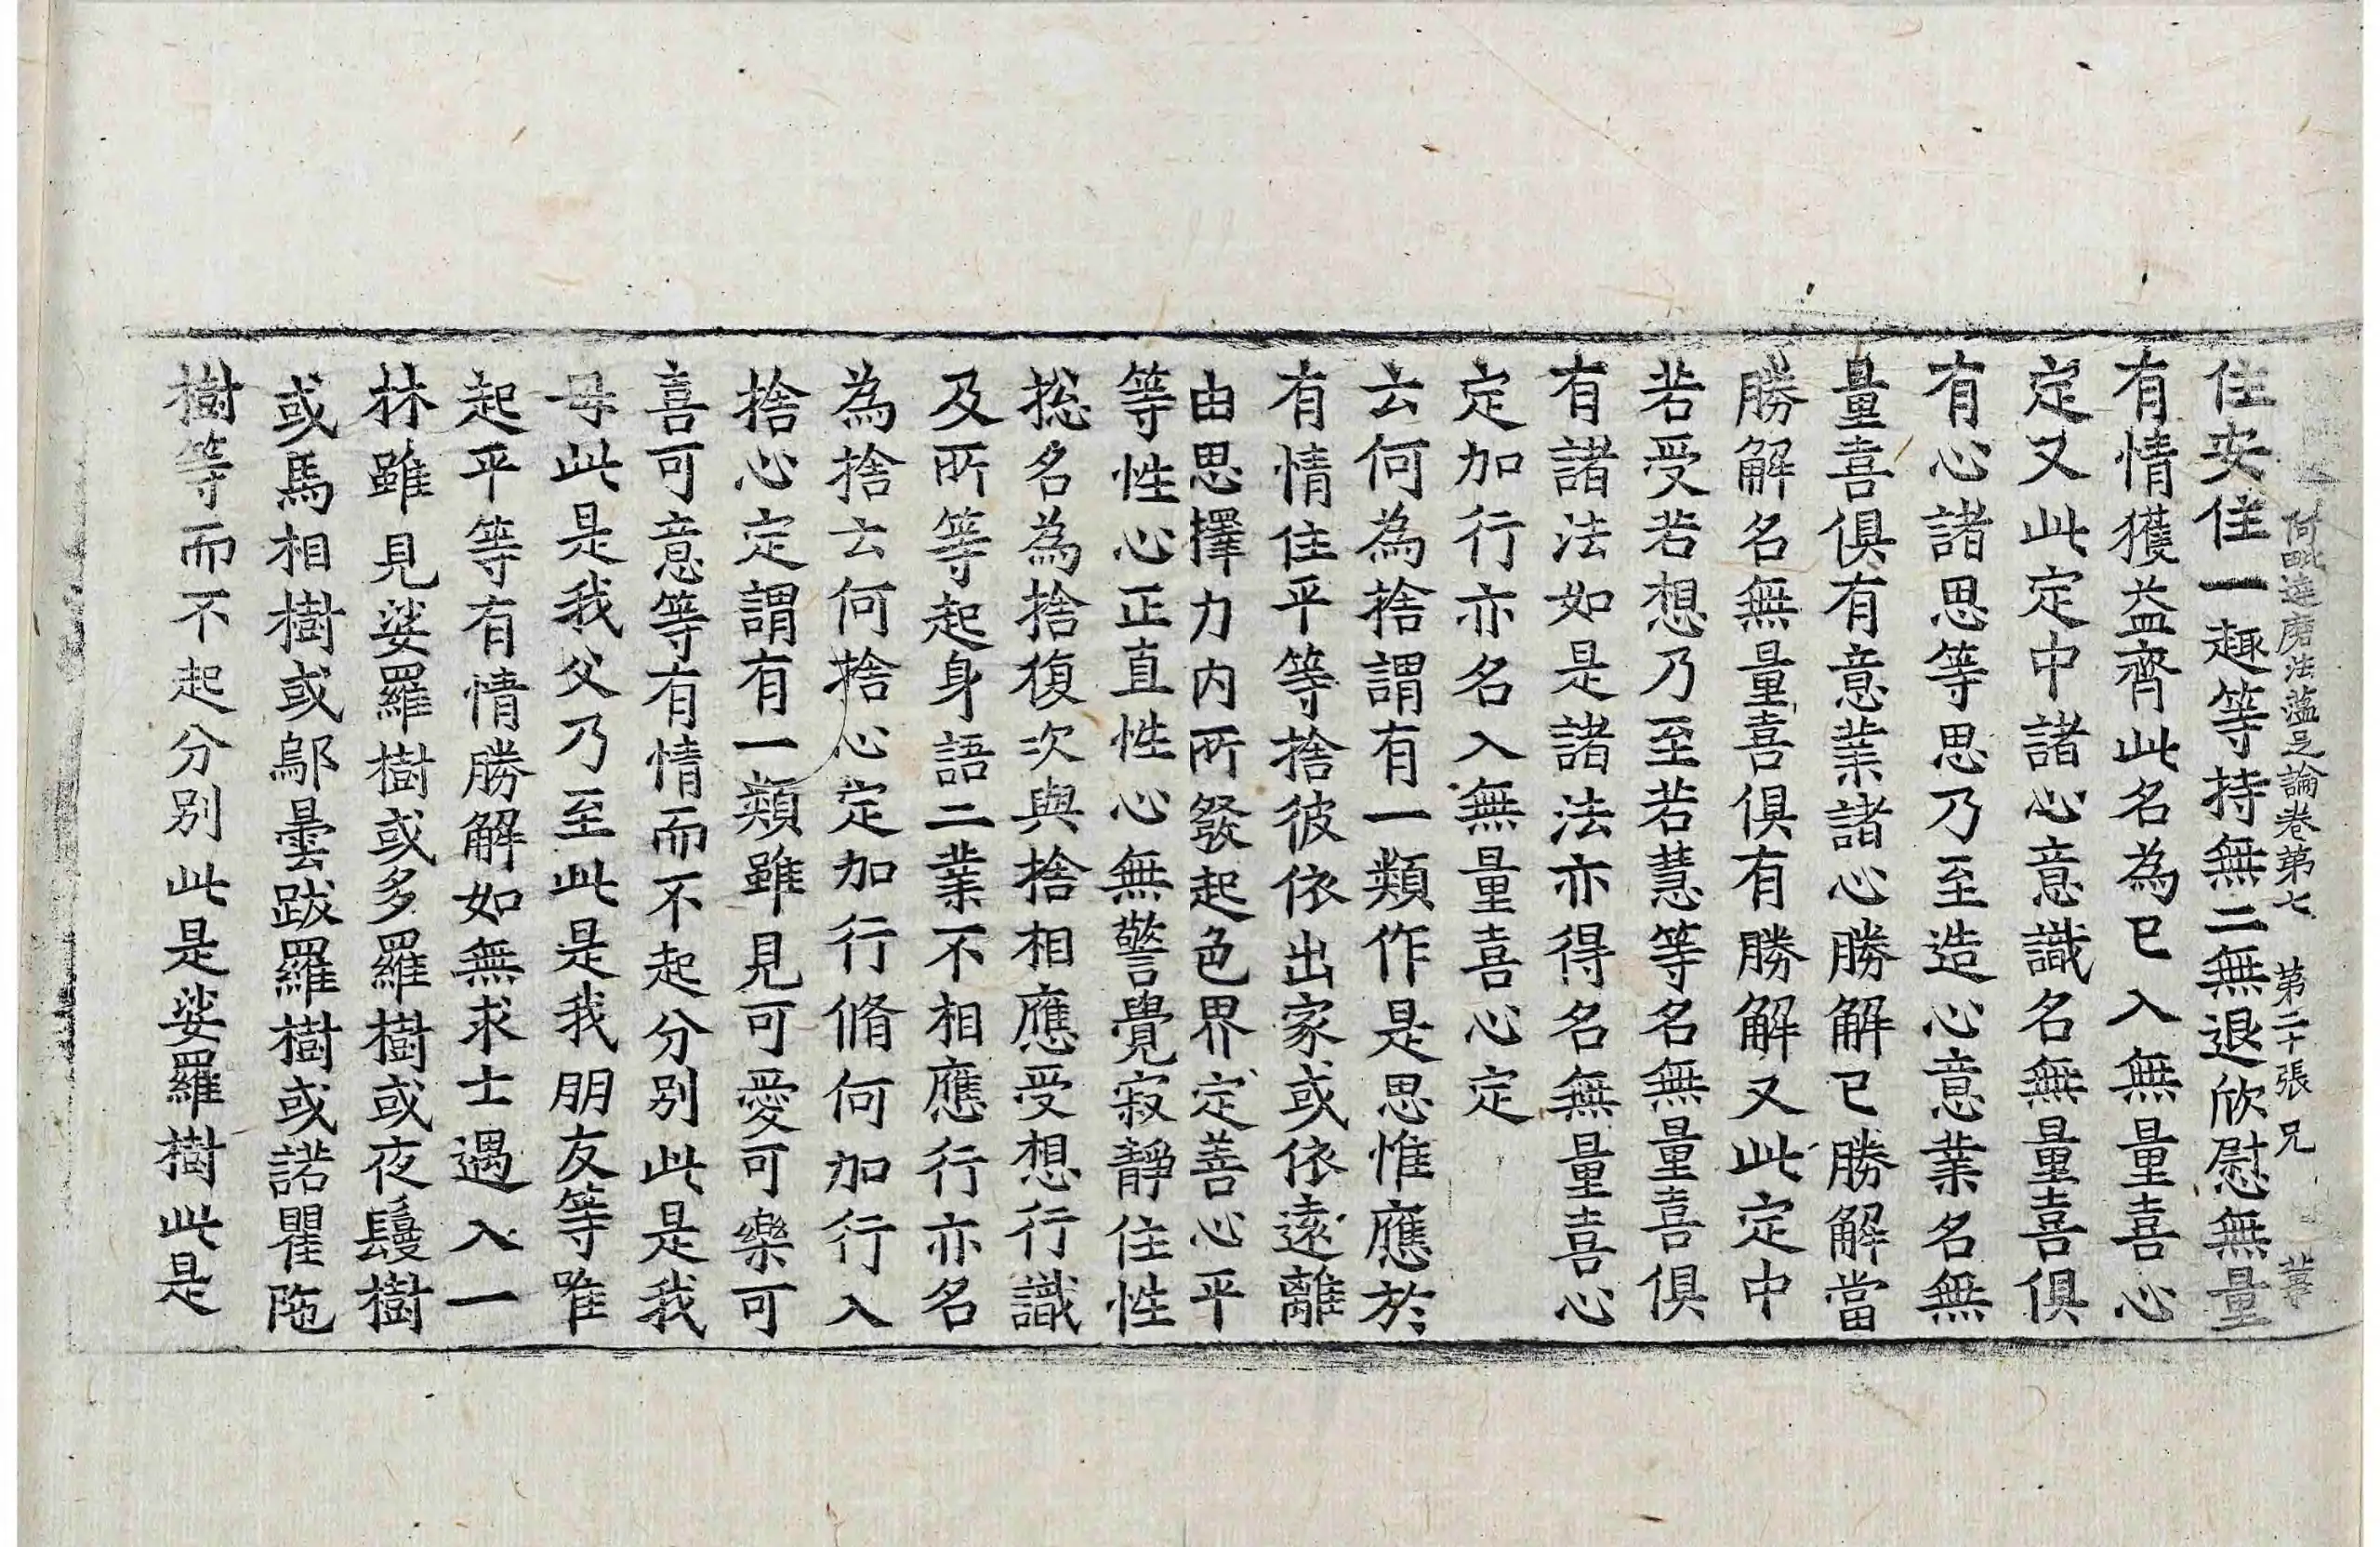 阿毗達磨法蘊足論卷第七 第二十張 兄
住安住一趣等持無二無退欣慰無量
有情獲益齊此名為已入無量喜心
定又此定中諸心意識名無量喜俱
有心諸思等思乃至造心意業名無
量喜俱有意業諸心勝解已勝解當
勝解名無量喜俱有勝解又此定中
若受若想乃至若慧等名無量喜俱
有諸法如是諸法亦得名無量喜心
定加行亦名入無量喜心定
云何為捨謂有一類作是思惟應於
有情住平等捨彼依出家或依遠離
由思擇力內所發起色界定善心平
等性心正直性心無警覺寂靜住性
捴名為捨復次與捨相應受想行識
及所等起身語二業不相應行亦名
為捨云何捨心定加行脩何加行入
捨心定謂有一類雖見可愛可樂可
喜可意等有情而不起分別此是我
母此是我父乃至此是我朋友等唯
起平等有情勝解如無求士遇入一
林雖見娑羅樹或多羅樹或夜鬘樹
或馬相樹或鄔曇跋羅樹或諾瞿陁
樹等而不起分別此是娑羅樹此是